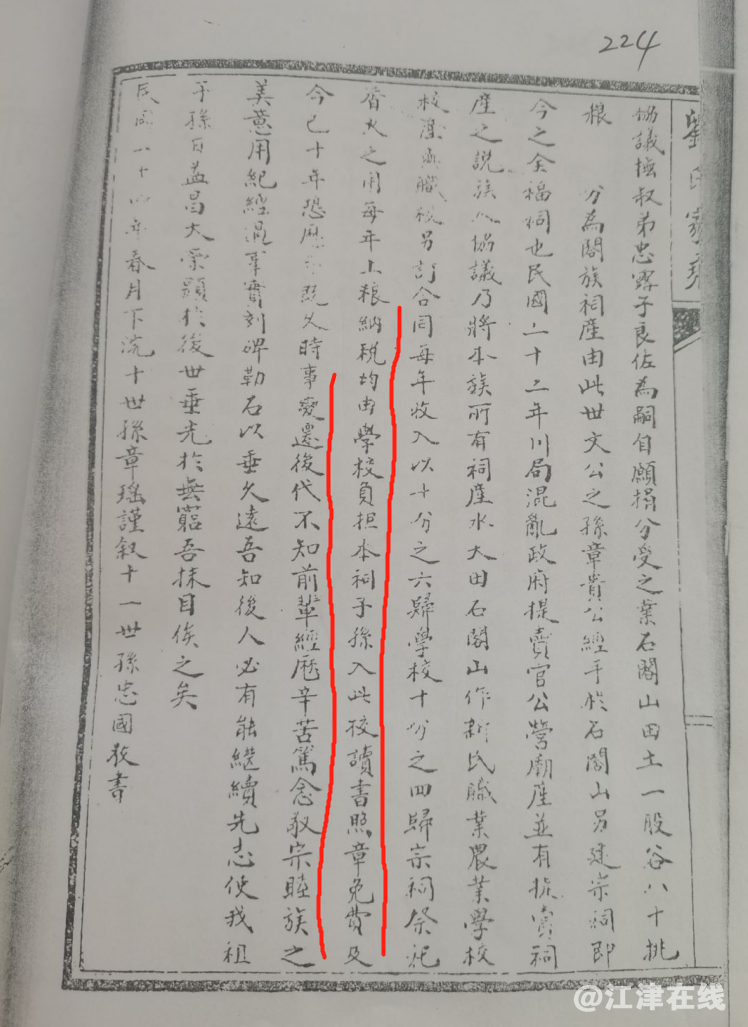 224
劉氏家
協議撫叔弟忠露子良佐為嗣自願撮分受之業石閣山田土一股谷八十挑
粮 分為闔族祠產由此世文公之孫章貴公經手於石閣山另建宗祠即
今之全福祠也民國二十二年川局混亂政府提賣官公營廟產並有提賣祠
產之說族人協議乃將本族所有祠產水大田石閣山作新民職業農業學校
校產與職校另訂合同每年收入以十分之六歸學校十份之四歸宗祠祭祀
香火之用每年上粮納稅均由學校負担本祠子孫入此校讀書照章免費及
今已十年恐歷 既久時事變遷後代不知前輩經歷辛苦篤念敬宗睦族之
美意用紀經過事實刻碑勒石以垂久遠吾知後人必有能繼續先志使我祖
子孫日益昌大榮顯於後世垂光於無窮吾抹目俟之矣
民國 十四年春月下浣十世孫章瑤謹叙十一世孫忠國敬書
@江津在线